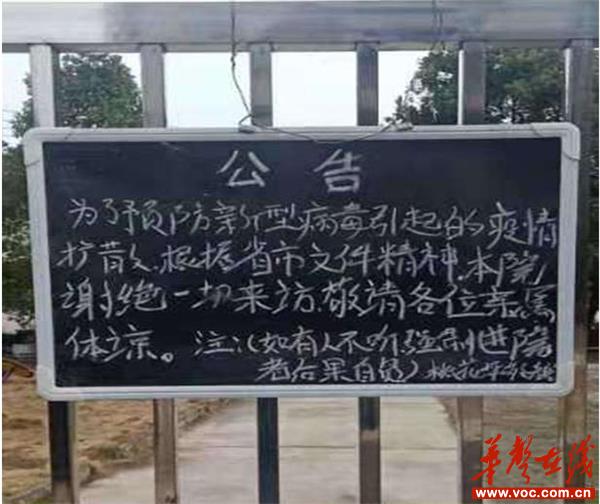 公告
为了预防新型病毒引起的疫情
扩散、根据省市文件精神、本院
谢绝一切来访、敬请各位亲属
体谅。注:(如有人不听强制进院
者后果自负)
华声在线
www.voc.com.cn